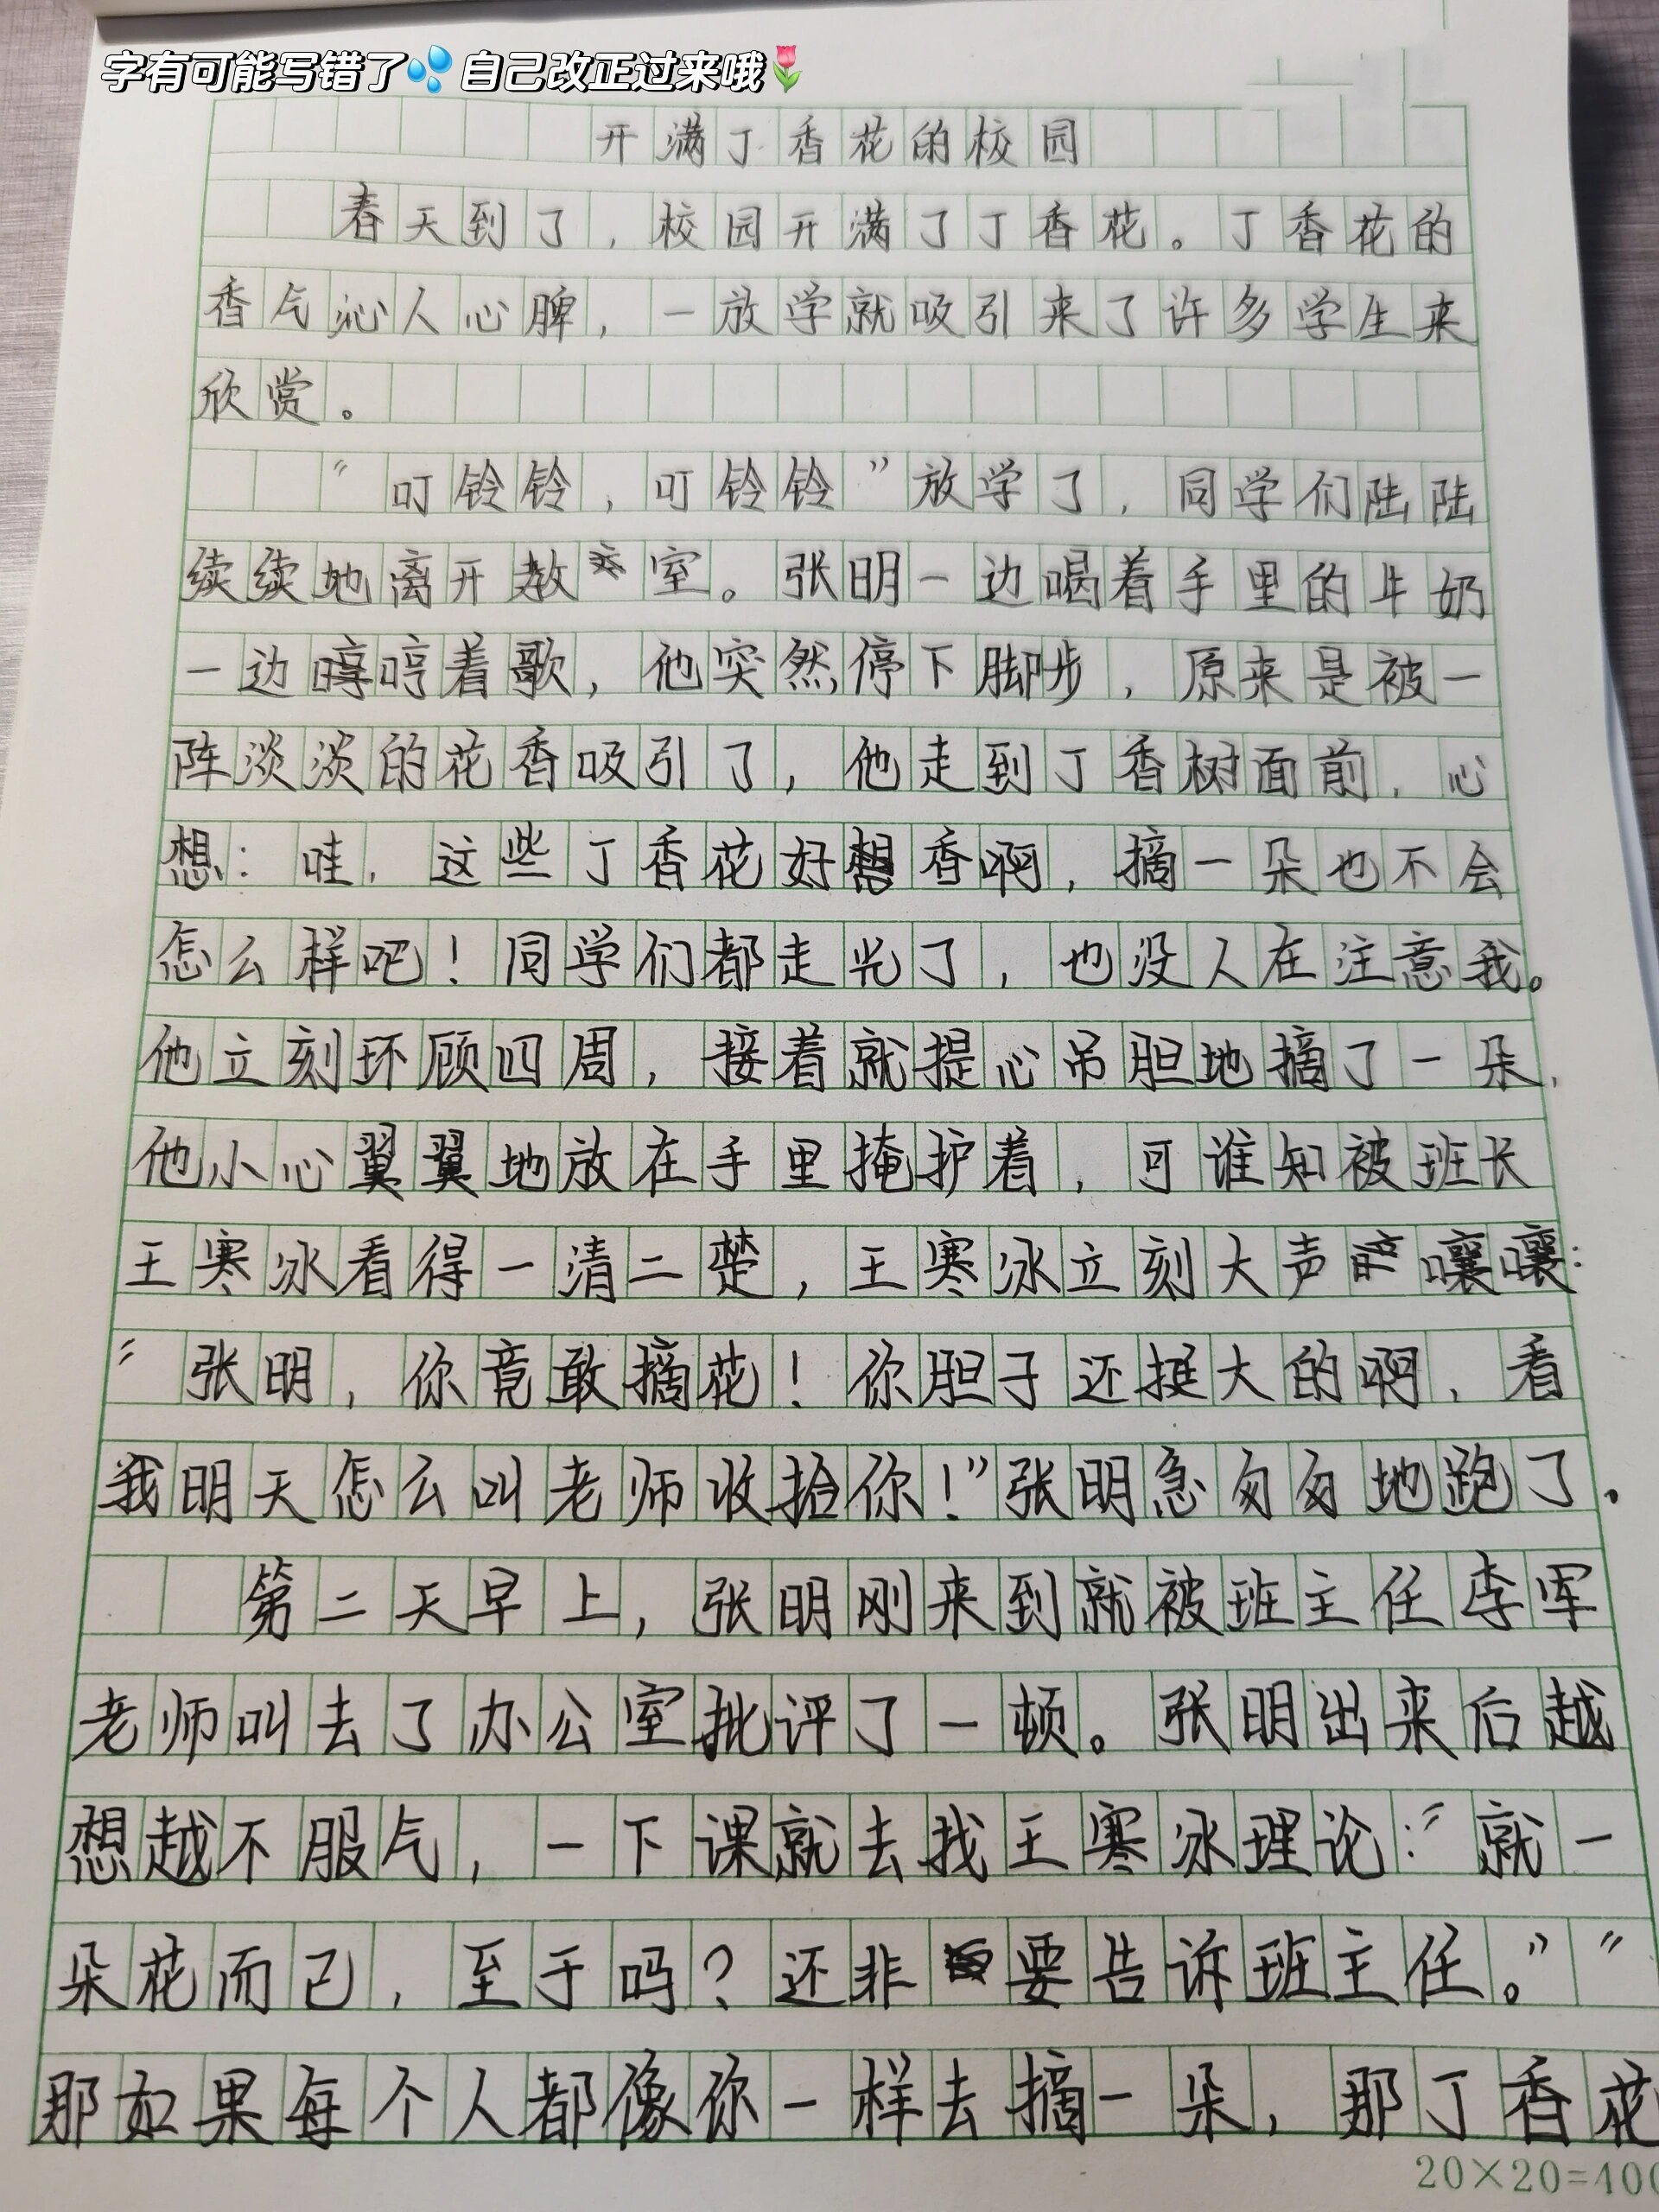 字有可能写错了💦自己改正过来哦🌷
开满丁香花的校园
春天到了，校园开满了丁香花。丁香花的
香气沁人心脾，一放学就吸引来了许多学生来
欣赏。
“叮铃铃，叮铃铃”放学了，同学们陆陆
续续地离开教室。张明一边喝着手里的牛奶
一边哼着歌，他突然停下脚步，原来是被一
阵淡淡的花香吸引了，他走到丁香树面前，心
想：哇，这些丁香花好香啊，摘一朵也不会
怎么样吧！同学们都走光了，也没人在注意我。
他立刻环顾四周，接着就提心吊胆地摘了一朵，
他小心翼翼地放在手里掩护着，可谁知被班长
王寒冰看得一清二楚，王寒冰立刻大声嚷嚷：
“张明，你竟敢摘花！你胆子还挺大的啊，看
我明天怎么叫老师收拾你！”张明急匆匆地跑了。
第二天早上，张明刚来到就被班主任李军
老师叫去了办公室批评了一顿。张明出来后越
想越不服气，一下课就去找王寒冰理论：“就一
朵花而已，至于吗？还非要告诉班主任。”“
那如果每个人都像你一样去摘一朵，那丁香花
20×20=400